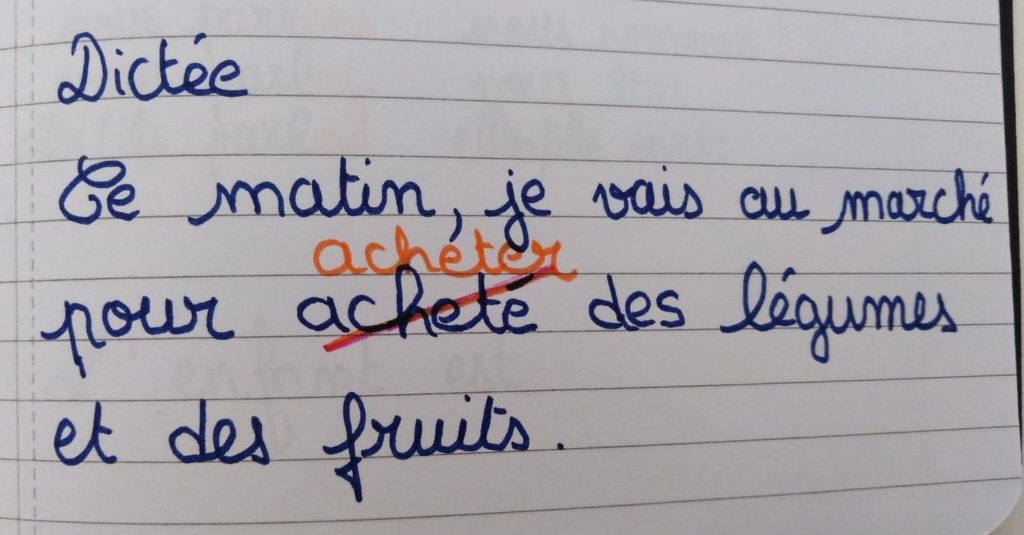 Dictée
Ce matin, je vais au marché
achéter
pour acheté des légumes
et des fruits.